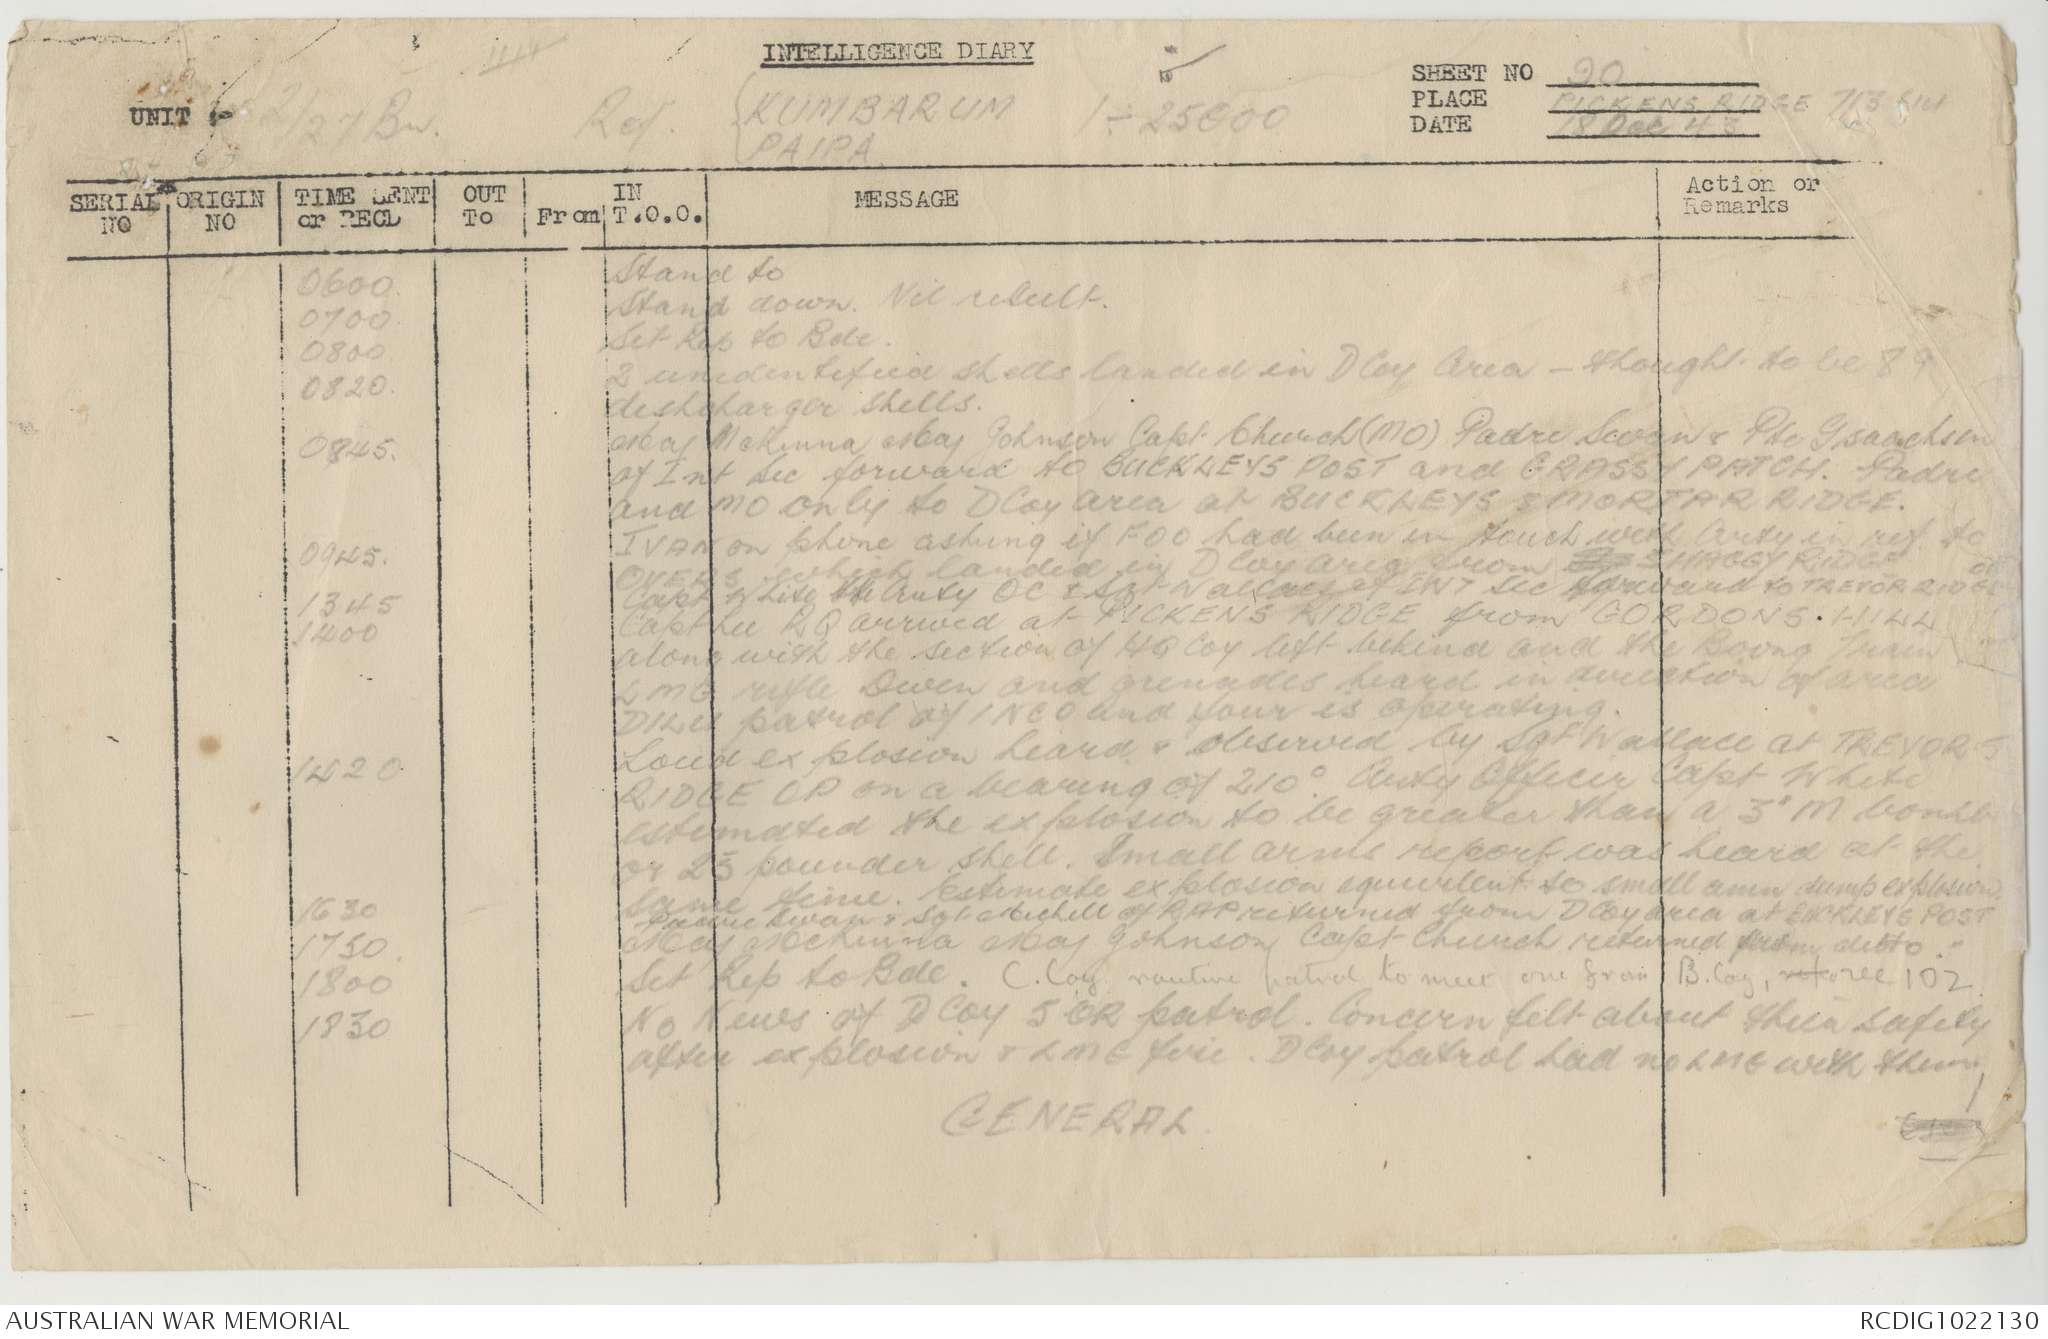 INTELLIGENCE DIARY
UNIT 2/27 Bn.
Ref. KUMBARUM 1 ÷ 25000
PAIPA
SHEET NO 20
PLACE PICKENS RIDGE
DATE 18 Dec 43
SERIAL NO
ORIGIN NO
TIME SENT or RECD
OUT To
From
IN T.O.O.
MESSAGE
Action or Remarks
0600. Stand to
0700 Stand down. Nil result.
0800 Sit Rep to Bde.
0820. 2 unidentified shells landed in D Coy Area - thought to be 89
dishcharger shells.
0845. Maj McKinna Maj Johnson Capt Church (MO) Padre Swan & Pte Isaachsen
of Int Sec forward to BUCKLEYS POST and GRASSY PATCH. Padre
and MO only to D Coy area at BUCKLEYS & MORTAR RIDGE.
0945. IVAN on phone asking if FOO had been in touch with Arty in ref. to
OVERS which landed in D Coy area from SHAGGY RIDGE
1345 Capt White the Arty OC & Sgt Wallace of INT Sec forward to TREVOR RIDGE OP
1400 Capt Lee RQ arrived at PICKENS RIDGE from GORDONS HILL
along with the section of HQ Coy left behind and the Boong Train.
LMG rifle Owen and grenades heard in direction of area
patrol of 1 NCO and four is operating.
1420 Loud explosion heard & observed by Sgt Wallace at TREVORS
RIDGE OP on a bearing of 210° Arty Officer Capt White
estimated the explosion to be greater than a 3" M bomb
or 25 pounder shell. Small arms report was heard at the
same time. Estimate explosion equivilent to small amn dump explosion.
1630 Padre Swan & Sgt Mitchell of RAP returned from D Coy area at BUCKLEYS POST
1750. Maj McKinna Maj Johnson Capt Church returned from ditto "
1800 Sit Rep to Bde. C. Coy routine patrol to meet one from B. Coy, 102
1830 No News of D Coy 5 OR patrol. Concern felt about their safety
after explosion & LMG fire. D Coy patrol had no LMG with them
GENERAL.
AUSTRALIAN WAR MEMORIAL
RCDIG1022130